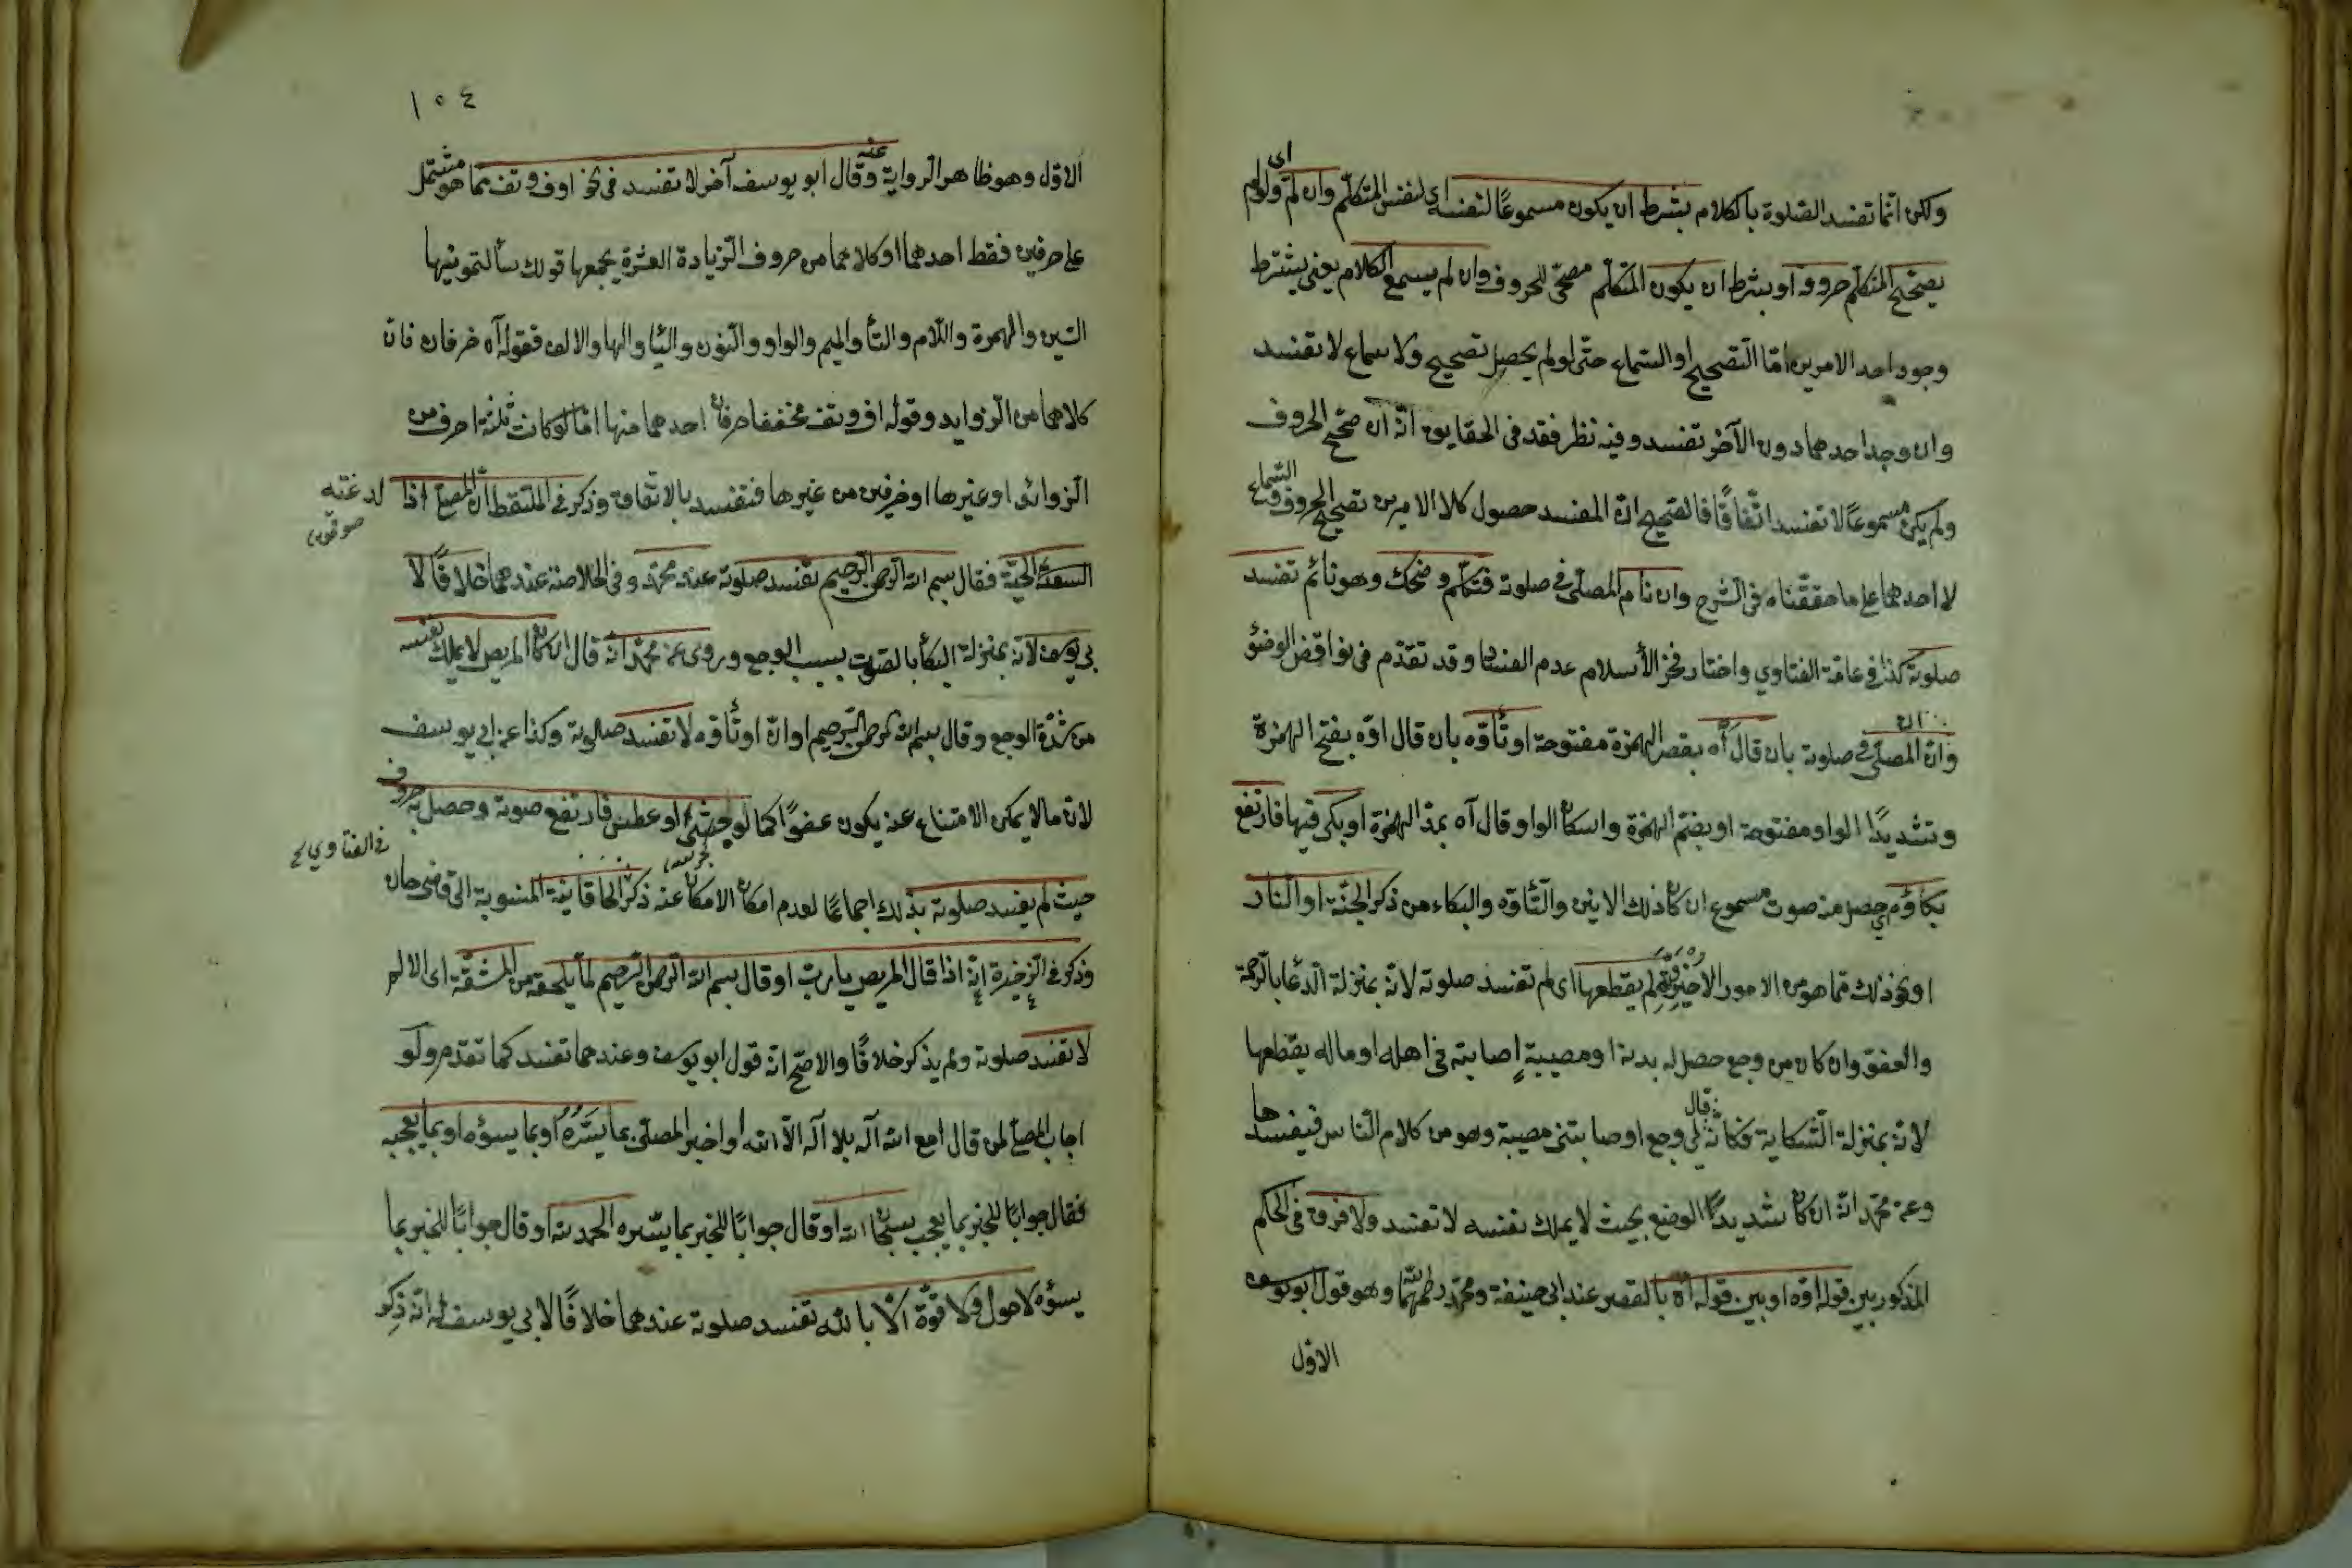 ولكن انما تفسد الصلوة بالكلام بشرط ان يكون مسموعًا لنفسه اى لنفس المتكلم وان لم اى ولو لم
يصحح المتكلم حروفه او بشرط ان يكون المتكلم مصحح للحروف وان لم يسمع الكلام يعنى يشترط
وجود احد الامرين امّا التصحيح او السماع حتى لو لم يحصل تصحيح ولا سماع لا تفسد
وان وجد احدهما دون الآخر تفسد وفيه نظر فقد فى الحقايق انه ان صحح الحروف
ولم يكن مسموعًا لا تفسد اتفاقًا فالصحيح ان المفسد حصول كلا الامرين تصحيح الحروف والسماع
لا احدهما على ما حققناه فى الشرح وان نام المصلى فى صلوته فتكلم وضحك وهو نائم تفسد
صلوته كذا فى عامة الفتاوي واختار فخر الأسلام عدم الفساد وقد تقدم فى نواقض الوضؤ
وان المصلى فى صلوته بان قال أه بقصر الهمزة مفتوحة او تأوّه بان قال اوّه بفتح الهمزة
وتشديدًا الواو مفتوحة او بضم الهمزة واسكان الواو وقال آه بمد الهمزة او بكى فيها فارتفع
بكاؤه اي حصل منه صوت مسموع ان كان ذلك الانين والتأوه والبكاء من ذكر الجنّة او النار
او نحو ذلك مما هو من الامور الاخروية لم يقطعها اى لم تفسد صلوته لانه بمنزلة الدعا بالرحمة
والعفو وان كان من وجع حصل له بدنه او مصيبة اصابته فى اهله او ماله يقطعها
لانه بمنزلة الشكاية فكانه قال لى وجع او صابتنى مصيبة وهو من كلام الناس فيفسدها
وعن محمد انه ان كان شديدًا الوضع بحيث لا يملك نفسه لا تفسد ولا فرق فى الحكم
المذكور بين قوله اوه او بين قوله اه بالقصر عند ابى حنيفة ومحمد رحمهما الله وهو قول ابو يوسف
الاول
١٠٤
الاول وهو ظاهر الرواية عنه وقال ابو يوسف آخر لا تفسد فى نحو اوف وتف مما هو مشتمل
على حرفين فقط احدهما او كلاهما من حروف الزيادة العشرة يجمعها قولك سألتمونيها
السين والهمزة واللام والتأ والميم والواو والنون واليا والها والالف فقوله آه حرفان فان
كلاهما من الزوايد وقوله اف وتف مخففا حرفان احدهما منها امّا لو كانت ثلثة احرف من
الزوائد او غيرها او حرفين من غيرها فتفسد بالاتفاق وذكر فى الملتقط ان المصلى اذا لدغته
السعة الحيّة فقال بسم الله الرحمن الرحيم تفسد صلوته عند محمد وفى الخلاصة عندهما خلافًا لا
بى يوسف لانه بمنزلة البكأ بالصوت بسبب الوجع وروى عن محمد انه قال ان كان المريض لا يملك نفسه
من شدة الوجع وقال بسم الله الرحمن الرحيم او انّ او تأوه لا تفسد صلوته وكذا عن ابى يوسف
لان ما لا يمكن الامتناع عنه يكون عفوًا كما لو جشئ او عطس فارتفع صوته وحصل به حروف
حيث لم يفسد صلوته بذلك اجماعًا لعدم امكان الامكان عنه ذكر الخاقانية المنسوبة الى قاضى خان
فى الفتاوي
وذكر فى الذخيرة انه اذا قال المريض يا رب او قال بسم الله الرحمن الرحيم لما يلحقه من المشقّة اى الالم
لا تفسد صلوته ولم يذكر خلافًا والاصح انه قول ابو يوسف وعندهما تفسد كما تقدم ولو
اجاب المصلى لمن قال امع الله آله بلا آله الاّ الله او اخبر المصلى بما يسّره او بما يسؤه او بما يعجبه
فقال جوابًا للخبر بما يعجب سبحان الله او قال جوابًا للخبر بما يسّره الحمد لله او قال جوابًا للخبر بما
يسؤه لا حول ولا قوة الاّ بالله تفسد صلوته عندهما خلافًا لابى يوسف له انه ذكر